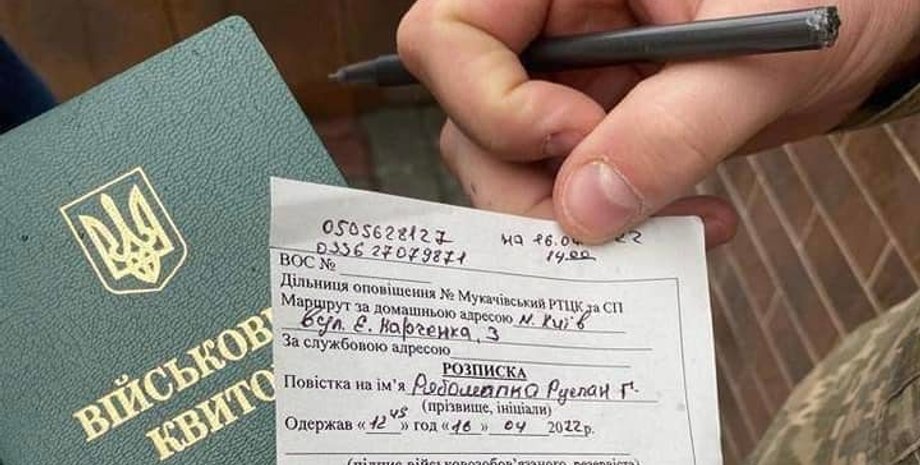 ВІЙСЬКОВ
КВИТО
0505628127 на 16.04 22
03362707987​1 14.00
ВОС №
Дільниця оповіщення № Мукачівський РТЦК та СП
Маршрут за домашньою адресою м. Київ
вул. Є. Харченка, 3
За службовою адресою
РОЗПИСКА
Повістка на ім'я Руслан Г.
(прізвище, ініціали)
Одержав «12 45» год «16» 04 2022р.
(підпис військовозобов'язаного, резервіста